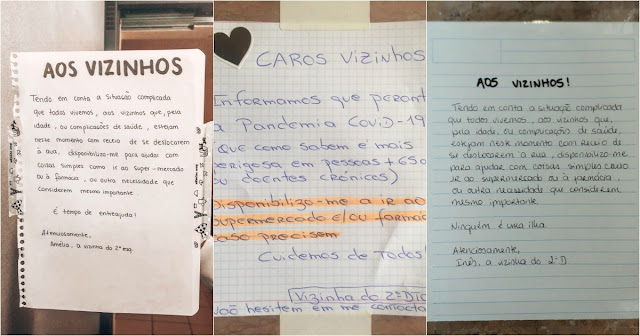 AOS VIZINHOS
Tendo em conta a situação complicada
que todos vivemos, aos vizinhos que, pela
idade, ou complicações de saúde, estejam
neste momento com receio de se deslocarem
à rua, disponibilizo-me para ajudar com
coisas simples como ir ao super-mercado
ou à farmácia, ou outra necessidade que
considerem mesmo importante.
É tempo de entreajuda!
Atenciosamente,
Amélia, a vizinha do 2º esq.
CAROS VIZINHOS
Informamos que perant
a Pandemia CoViD-19
(Que como sabem é mais
perigosa em pessoas +65
ou doentes crónicos)
Disponibilizo-me a ir ao
supermercado e/ou farmác
caso precisem
Cuidemos de Todos!
Vizinha do 2º DTO
Não hesitem em me contacta
AOS VIZINHOS!
Tendo em conta a situação complicada
que todos vivemos, aos vizinhos que,
pela idade, ou complicação de saúde,
estejam neste momento com receio de
se deslocarem à rua, disponibilizo-me
para ajudar com coisas simples como
ir ao supermercado ou à farmácia,
ou outra necessidade que considerem
mesmo importante.
Ninguém é uma ilha.
Atenciosamente,
Inês, a vizinha do 2º D